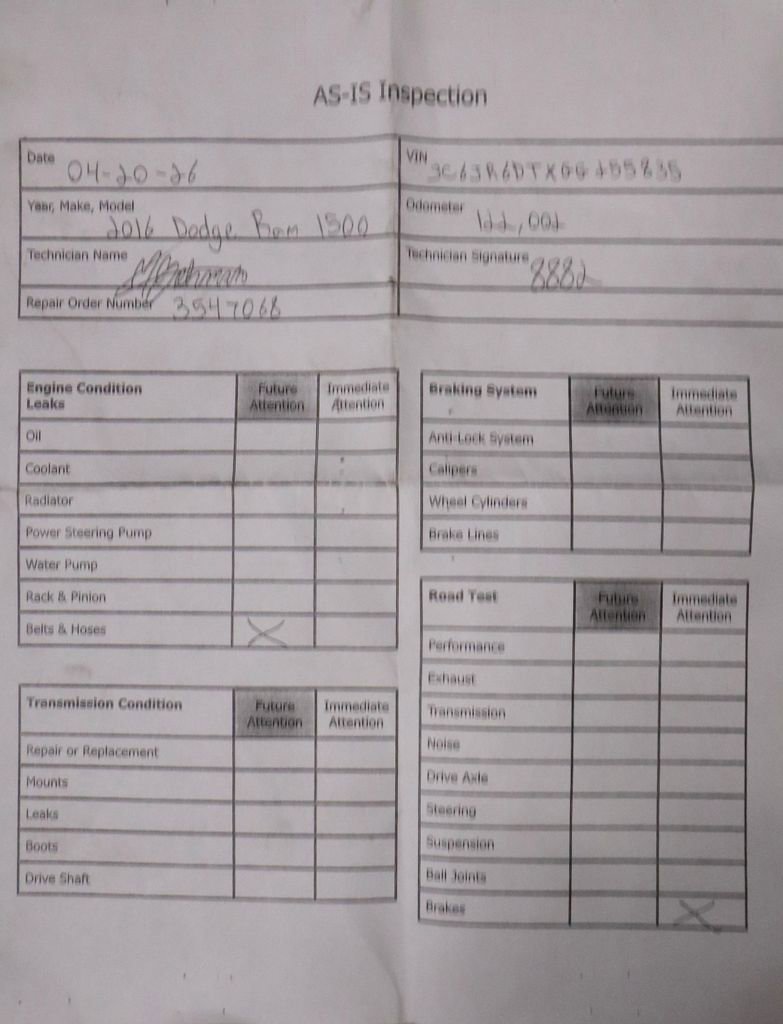 AS-IS Inspection
Date 04-20-26
VIN
Year, Make, Model 2016 Dodge Ram 1500
Odometer 122,002
Technician Name
Technician Signature 8882
Repair Order Number 3547068
Engine Condition Leaks Future Attention Immediate Attention
Oil
Coolant
Radiator
Power Steering Pump
Water Pump
Rack & Pinion
Belts & Hoses X
Transmission Condition Future Attention Immediate Attention
Repair or Replacement
Mounts
Leaks
Boots
Drive Shaft
Braking System Future Attention Immediate Attention
Anti-Lock System
Calipers
Wheel Cylinders
Brake Lines
Road Test Future Attention Immediate Attention
Performance
Exhaust
Transmission
Noise
Drive Axle
Steering
Suspension
Ball Joints
Brakes X